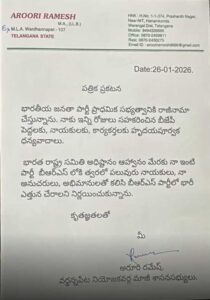 AROORI RAMESH
M.A., (LL.B)
Ex M.L.A. Wardhannapet - 107
TELANGANA STATE
Prashanth Nagar,
Near NIT, Hanamkonda,
Warangal Dist, Telangana
Date:26-01-2026.
పత్రిక ప్రకటన
భారతీయ జనతా పార్టీ ప్రాథమిక సభ్యత్వానికి రాజీనామా
చేస్తున్నాను. నాకు ఇన్ని రోజులు సహకరించిన బీజేపీ
పెద్దలకు, నాయకులకు, కార్యకర్తలకు హృదయపూర్వక
ధన్యవాదాలు.
భారత రాష్ట్ర సమితి అధిష్టానం ఆహ్వానం మేరకు నా ఇంటి
పార్టీ బీఆర్ఎస్ లోకి త్వరలో పలువురు నాయకులు, నా
అనుచరులు, అభిమానులతో కలిసి బీఆర్ఎస్ పార్టీలో భారీ
ఎత్తున చేరాలని నిర్ణయించుకున్నాను.
కృతజ్ఞతలతో
మీ
అరూరి రమేష్,
వర్ధన్నపేట నియోజకవర్గ మాజీ శాసనసభ్యులు.